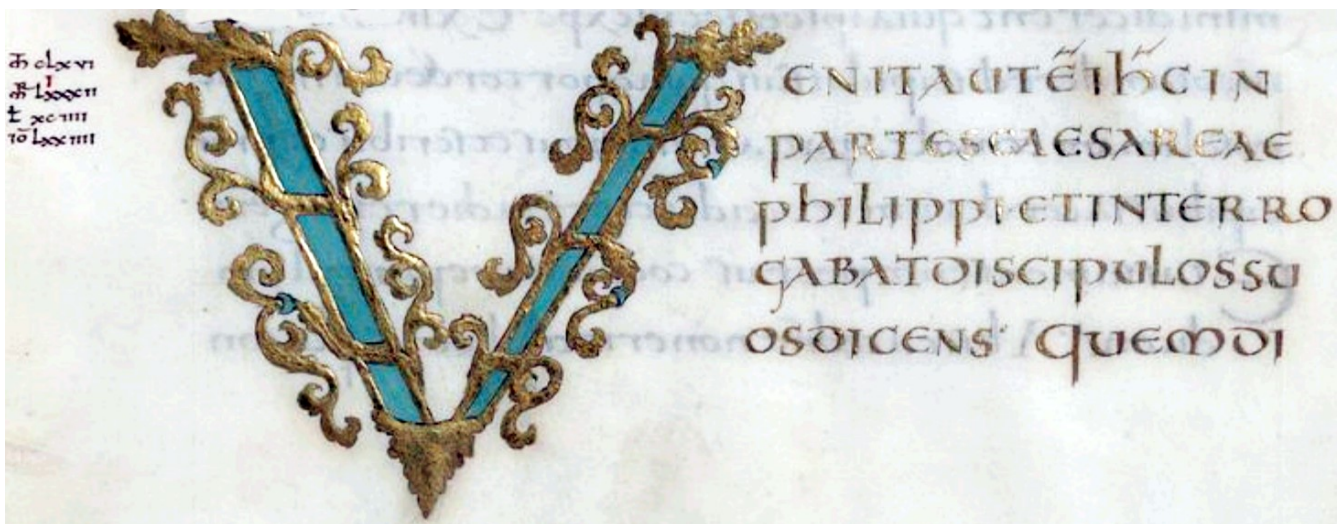 m̄ cLxvi
m̄r Lxxxii
ī
L̄ xciiii
iō Lxxiiii
VENIT AUTĒ IHC̄ IN
PARTES CAESAREAE
PHILIPPI ET INTERRO
GABAT DISCIPULOS SU
OS DICENS QUEM DI